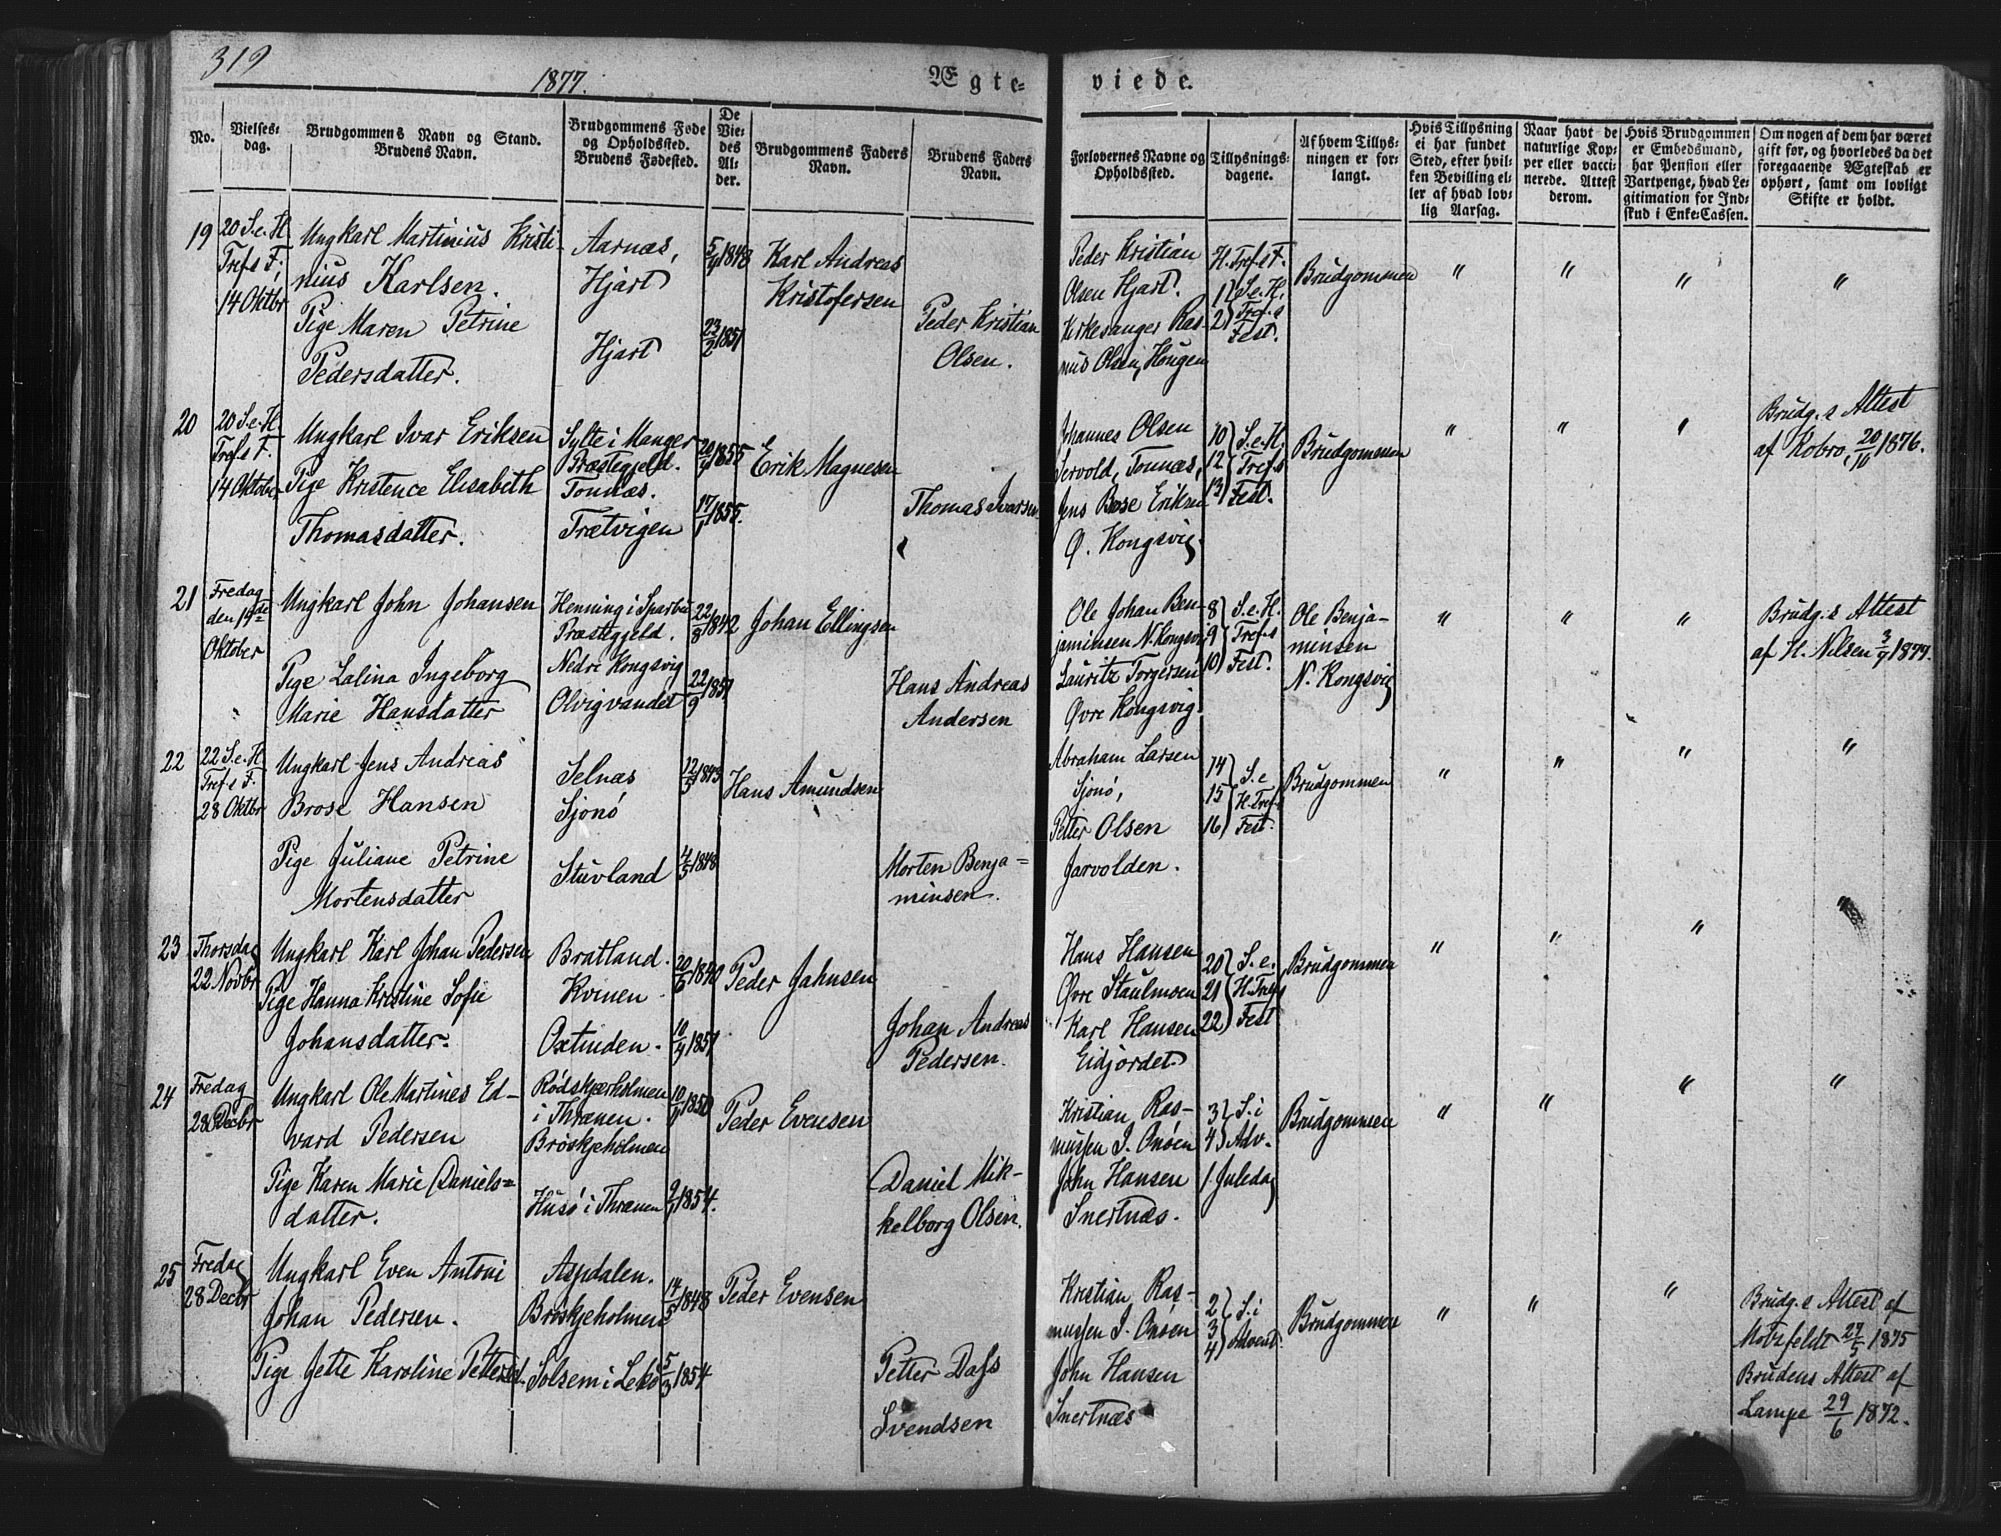 319
1877.
Ægte-
viede.
No.
Vielses-
dag.
Brudgommens Navn og Stand.
Brudens Navn.
Brudgommens Føde
og Opholdssted.
Brudens Fødested.
De
Vie-
des
Al-
der.
Brudgommens Faders
Navn.
Brudens Faders
Navn.
Forlovernes Navne og
Opholdssted.
Tillysnings-
dagene.
Af hvem Tillys-
ningen er for-
langt.
Hvis Tillysning
ei har fundet
Sted, efter hvil-
ken Bevilling el-
ler af hvad lov-
lig Aarsag.
Naar havt de
naturlige Kop-
per eller vacci-
nerede. Attest
derom.
Hvis Brudgommen
er Embedsmand,
har Pension eller
Vartpenge, hvad Le-
gitimation for Ind-
skud i Enke-Cassen.
Om nogen af dem har været
gift før, og hvorledes da det
foregaaende Ægteskab er
ophørt, samt om lovligt
Skifte er holdt.
19
20 S. e. H.
Tref.s F.,
14 Oktbr
Ungkarl Martinius Kristi-
nius Karlsen.
Pige Maren Petrine
Pedersdatter.
Aarnæs,
Hjart
Hjart
5/4 1848
23/2 1851
Karl Andreas
Kristofersen
Peder Kristian
Olsen.
Peder Kristian
Olsen Hjart.
Kirkesanger Ras-
mus Olsen, Hougen
H. Tref.s F.
1) S. e. H.
2) Tref.s
Fest.
Brudgommen
" " " "
20
20 S. e. H.
Tref.s F.
14 Oktober
Ungkarl Ivar Eriksen
Pige Kristence Elisabeth
Thomasdatter.
Sylte i Manger
Præstegjeld.
Tonnæs.
Trætvigen
20/4 1855
17/1 1855.
Erik Magnesen
Thomas Ivarsen
Johannes Olsen
Jervold, Tonnæs,
Jens Bose Eriksen
Ø. Kongsvig.
10 S. e. H.
12 Tref.s
13 Fest.
Brudgommen
" " "
Brudg.s Attest
af Kobro, 20/10 1876.
21
Fredag
den 19de
Oktober
Ungkarl John Johansen
Pige Lalina Ingeborg
Marie Hansdatter
Henning i Sparbu
Præstegjeld.
Nedre Kongsvig
Olvigvandet
22/3 1842
22/9 1851
Johan Ellingsen
Hans Andreas
Andersen
Ole Johan Ben-
jaminsen N. Kongsvig
Lauritz Torgersen
Øvre Kongsvig.
8 S. e. H.
9 Tref.s
10 Fest.
Ole Benja-
minsen
N. Kongsvig
" " "
Brudg.s Attest
af H. Nilsen 3/9 1877.
22
22 S. e. H.
Tref.s F.
28 Oktbr
Ungkarl Jens Andreas
Brose Hansen
Pige Juliane Petrine
Mortensdatter
Selnæs
Sjonö
Stuvland
12/3 1843
4/5 1848
Hans Amundsen
Morten Benja=
minsen.
Abraham Larsen
Sjonö,
Petter Olsen
Jarvolden.
14 S. e
15 H. Tref.s
16 Fest.
Brudgommen
" " " "
23
Thorsdag
22 Novbr
Ungkarl Karl Johan Pedersen
Pige Hanna Kristine Sofie
Johansdatter.
Bratland.
Kvinen.
Oxtinden.
20/6 1840
10/4 1851
Peder Jahnsen
Johan Andreas
Pedersen.
Hans Hansen
Øvre Staulmoen
Karl Hansen
Eidjordet
20 S. e.
21 H. Tref.s
22 Fest
Brudgommen
" " " "
24
Fredag
28 Decbr
Ungkarl Ole Martines Ed-
vard Pedersen
Pige Karen Marie Daniels=
datter.
Rödskjærholmen
i Thrænen.
Bröskjeholmen
Husö i Thrænen
10/9 1850
9/7 1854.
Peder Evensen
Daniel Mik-
kelborg Olsen.
Kristian Ras-
mussen I. Onöen
John Hansen
Snertnæs.
3 S. i
4 Adv.
1. Juledag
Brudgommen
" " " "
25
Fredag
28 Decbr
Ungkarl Even Antoni
Johan Pedersen.
Pige Jette Karoline Pettersd.
Aspdalen.
Bröskjeholmen
Solsem i Lekö
14/5 1848
5/3 1854
Peder Evensen
Petter Dass
Svendsen
Kristian Ras-
mussen I. Onöen
John Hansen
Snertnæs
2 S. i
3 Advent.
4
Brudgommen
" " "
Brudg.s Attest af
Motzfeldt 27/5 1875
Brudens Attest af
Lampe 29/6 1872.